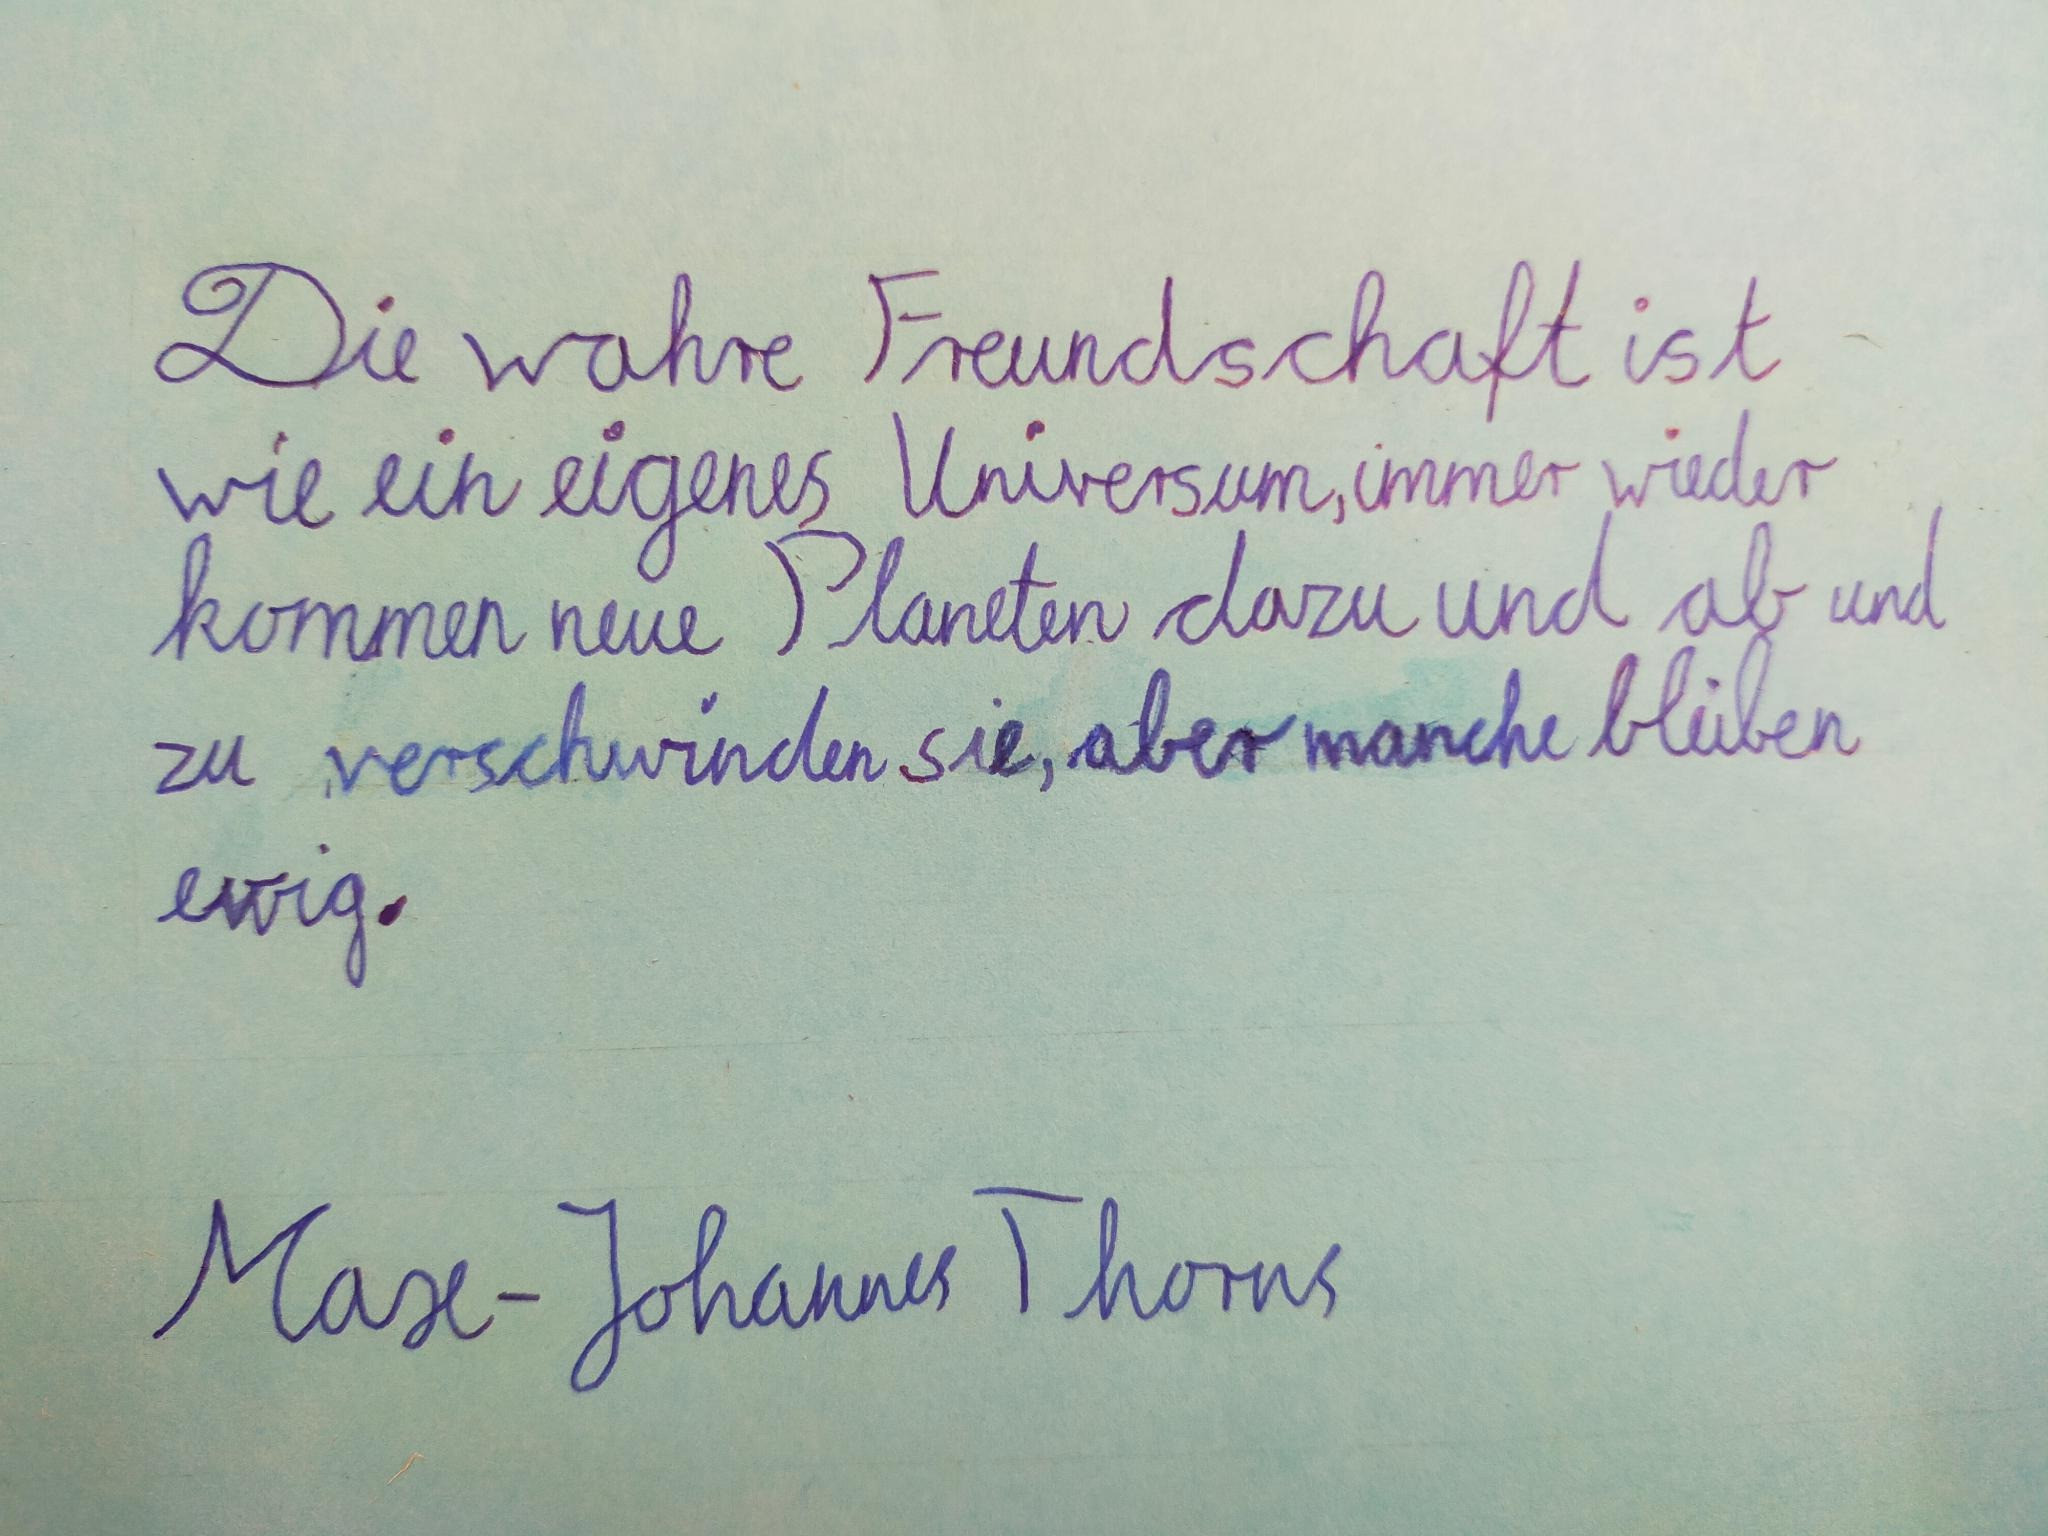 Die wahre Freundschaft ist
wie ein eigenes Universum, immer wieder
kommen neue Planeten dazu und ab und
zu verschwinden sie, aber manche bleiben
ewig.
Max-Johannes Thorns